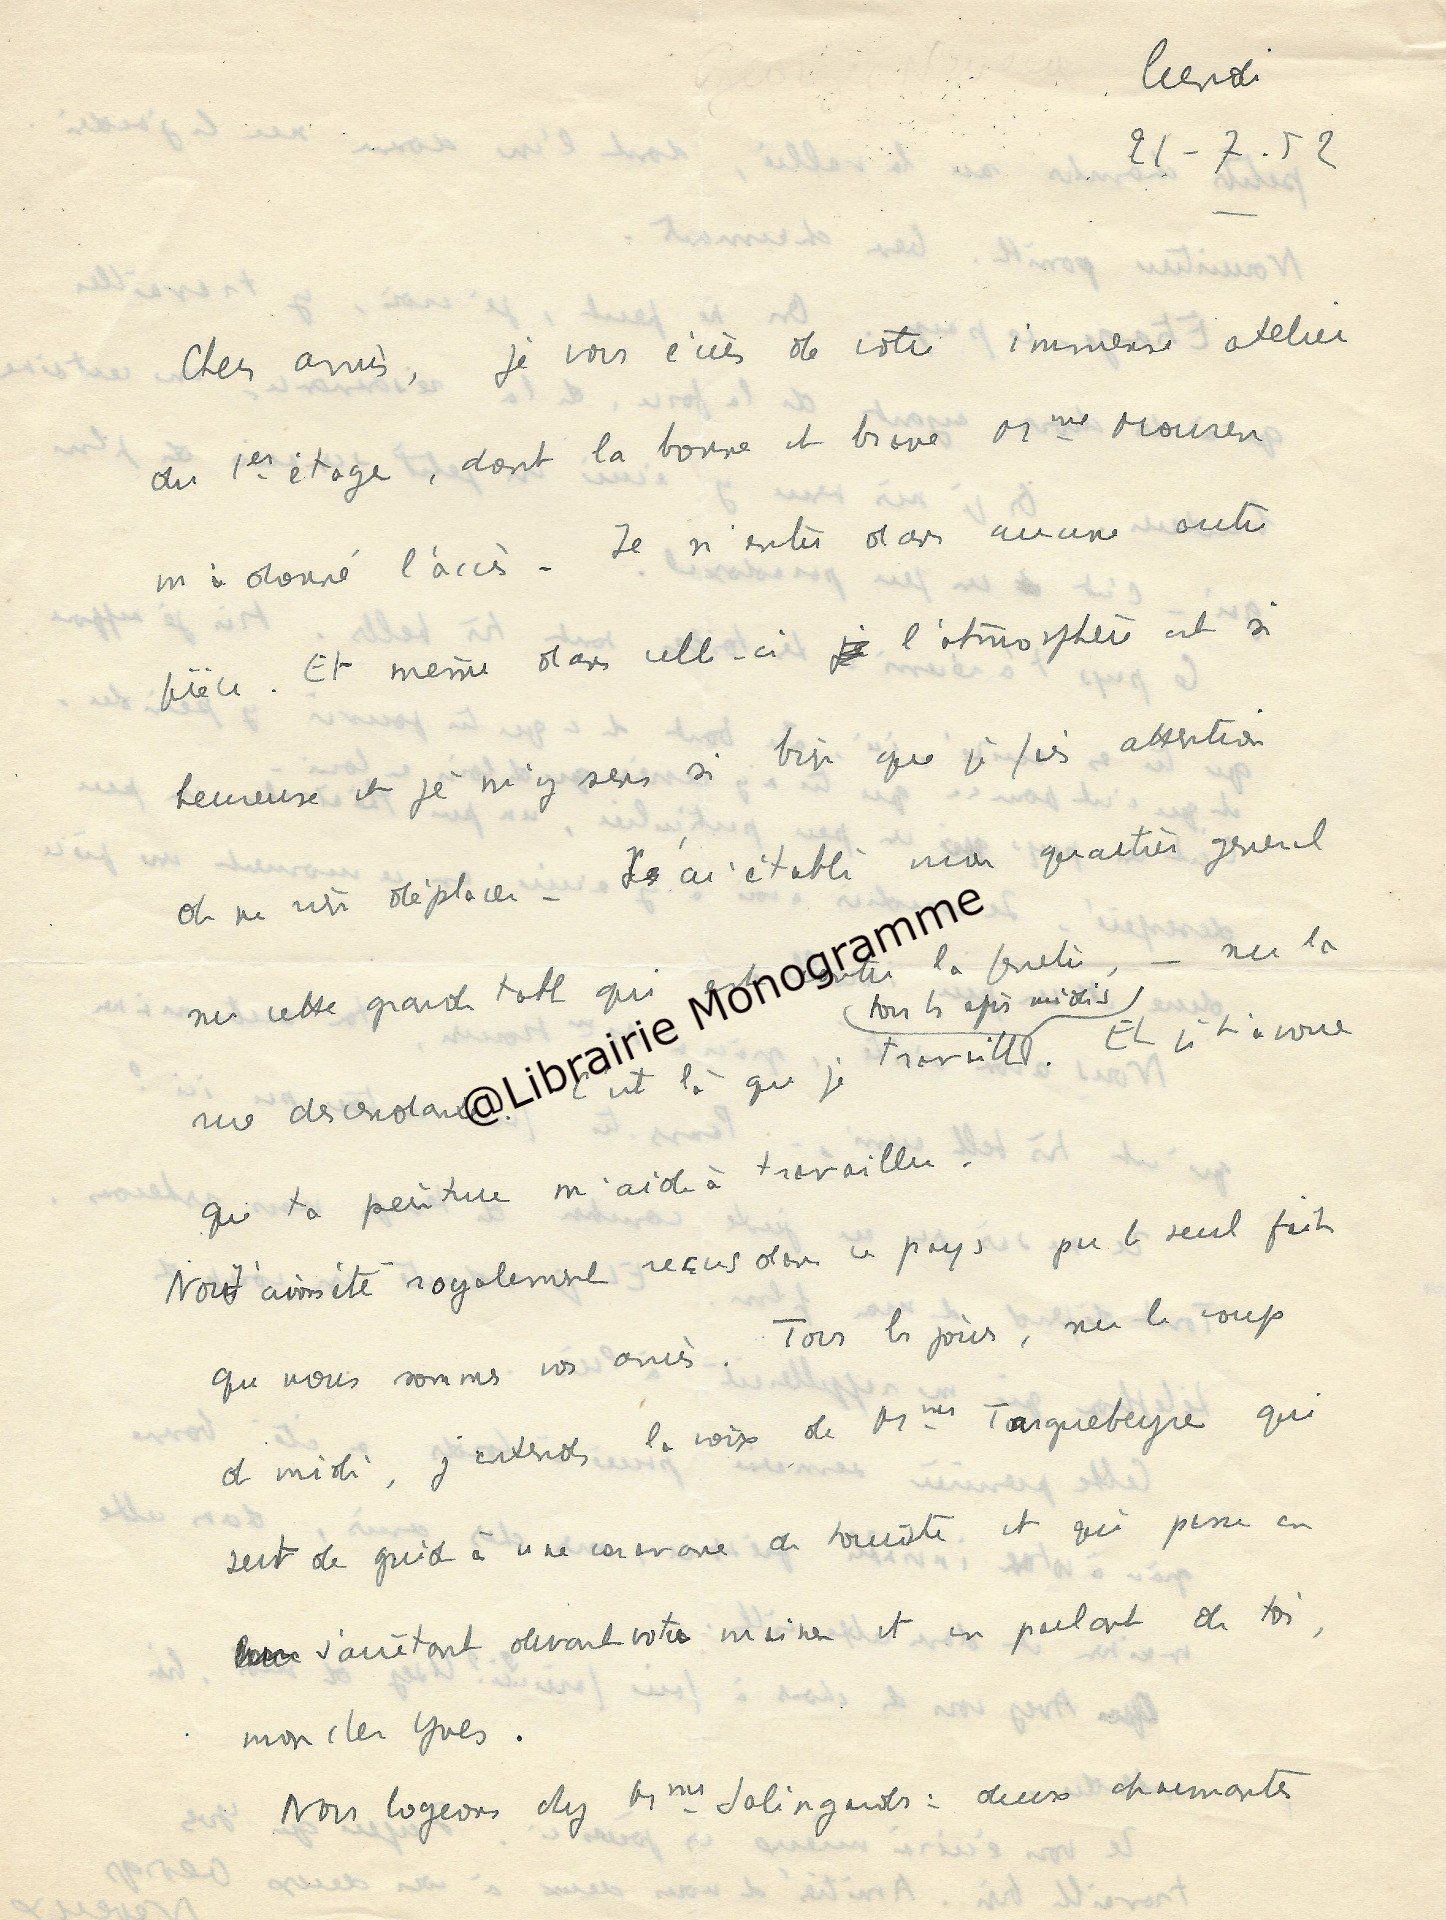 Lundi
21-7.52
Chers amis, je vous écris de votre immense atelier
du 1er étage, dont la bonne et brave Mme Mouren
m'a donné l'accès - Je n'entre dans aucune autre
pièce. Et même dans celle-ci l'atmosphère est si
heureuse et je m'y sens si bien que je fais attention
de ne rien déplacer - J'ai établi mon quartier général
sur cette grande table qui est contre la fenêtre, - sur la
tous les après midis
rue descendante. C'est là que je travaille. Et je t'avoue
que ta peinture m'aide à travailler.
Nous avons été royalement reçus dans ce pays par le seul fait
que nous sommes vos amis. Tous les jours, sur le coup
de midi, j'entends la voix de Mme Tarquebeyre qui
sert de guide à une caravane de touriste et qui passe en
s'arrêtant devant votre maison et en parlant de toi,
mon cher Yves.
Nous logeons chez Mmes Salingardes : deux charmantes
@Librairie Monogramme